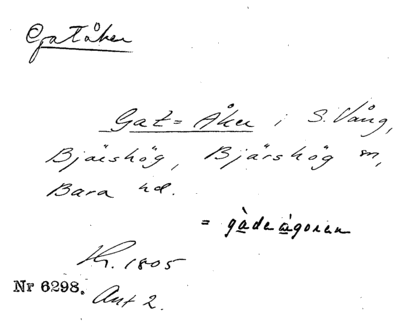 Gatåker
Gat=Åker i S. Vång,
Bjärshög, Bjärshög sn,
Bara hd.
= gàdeàgoren
Kh. 1805
Nr 6298. Akt 2.